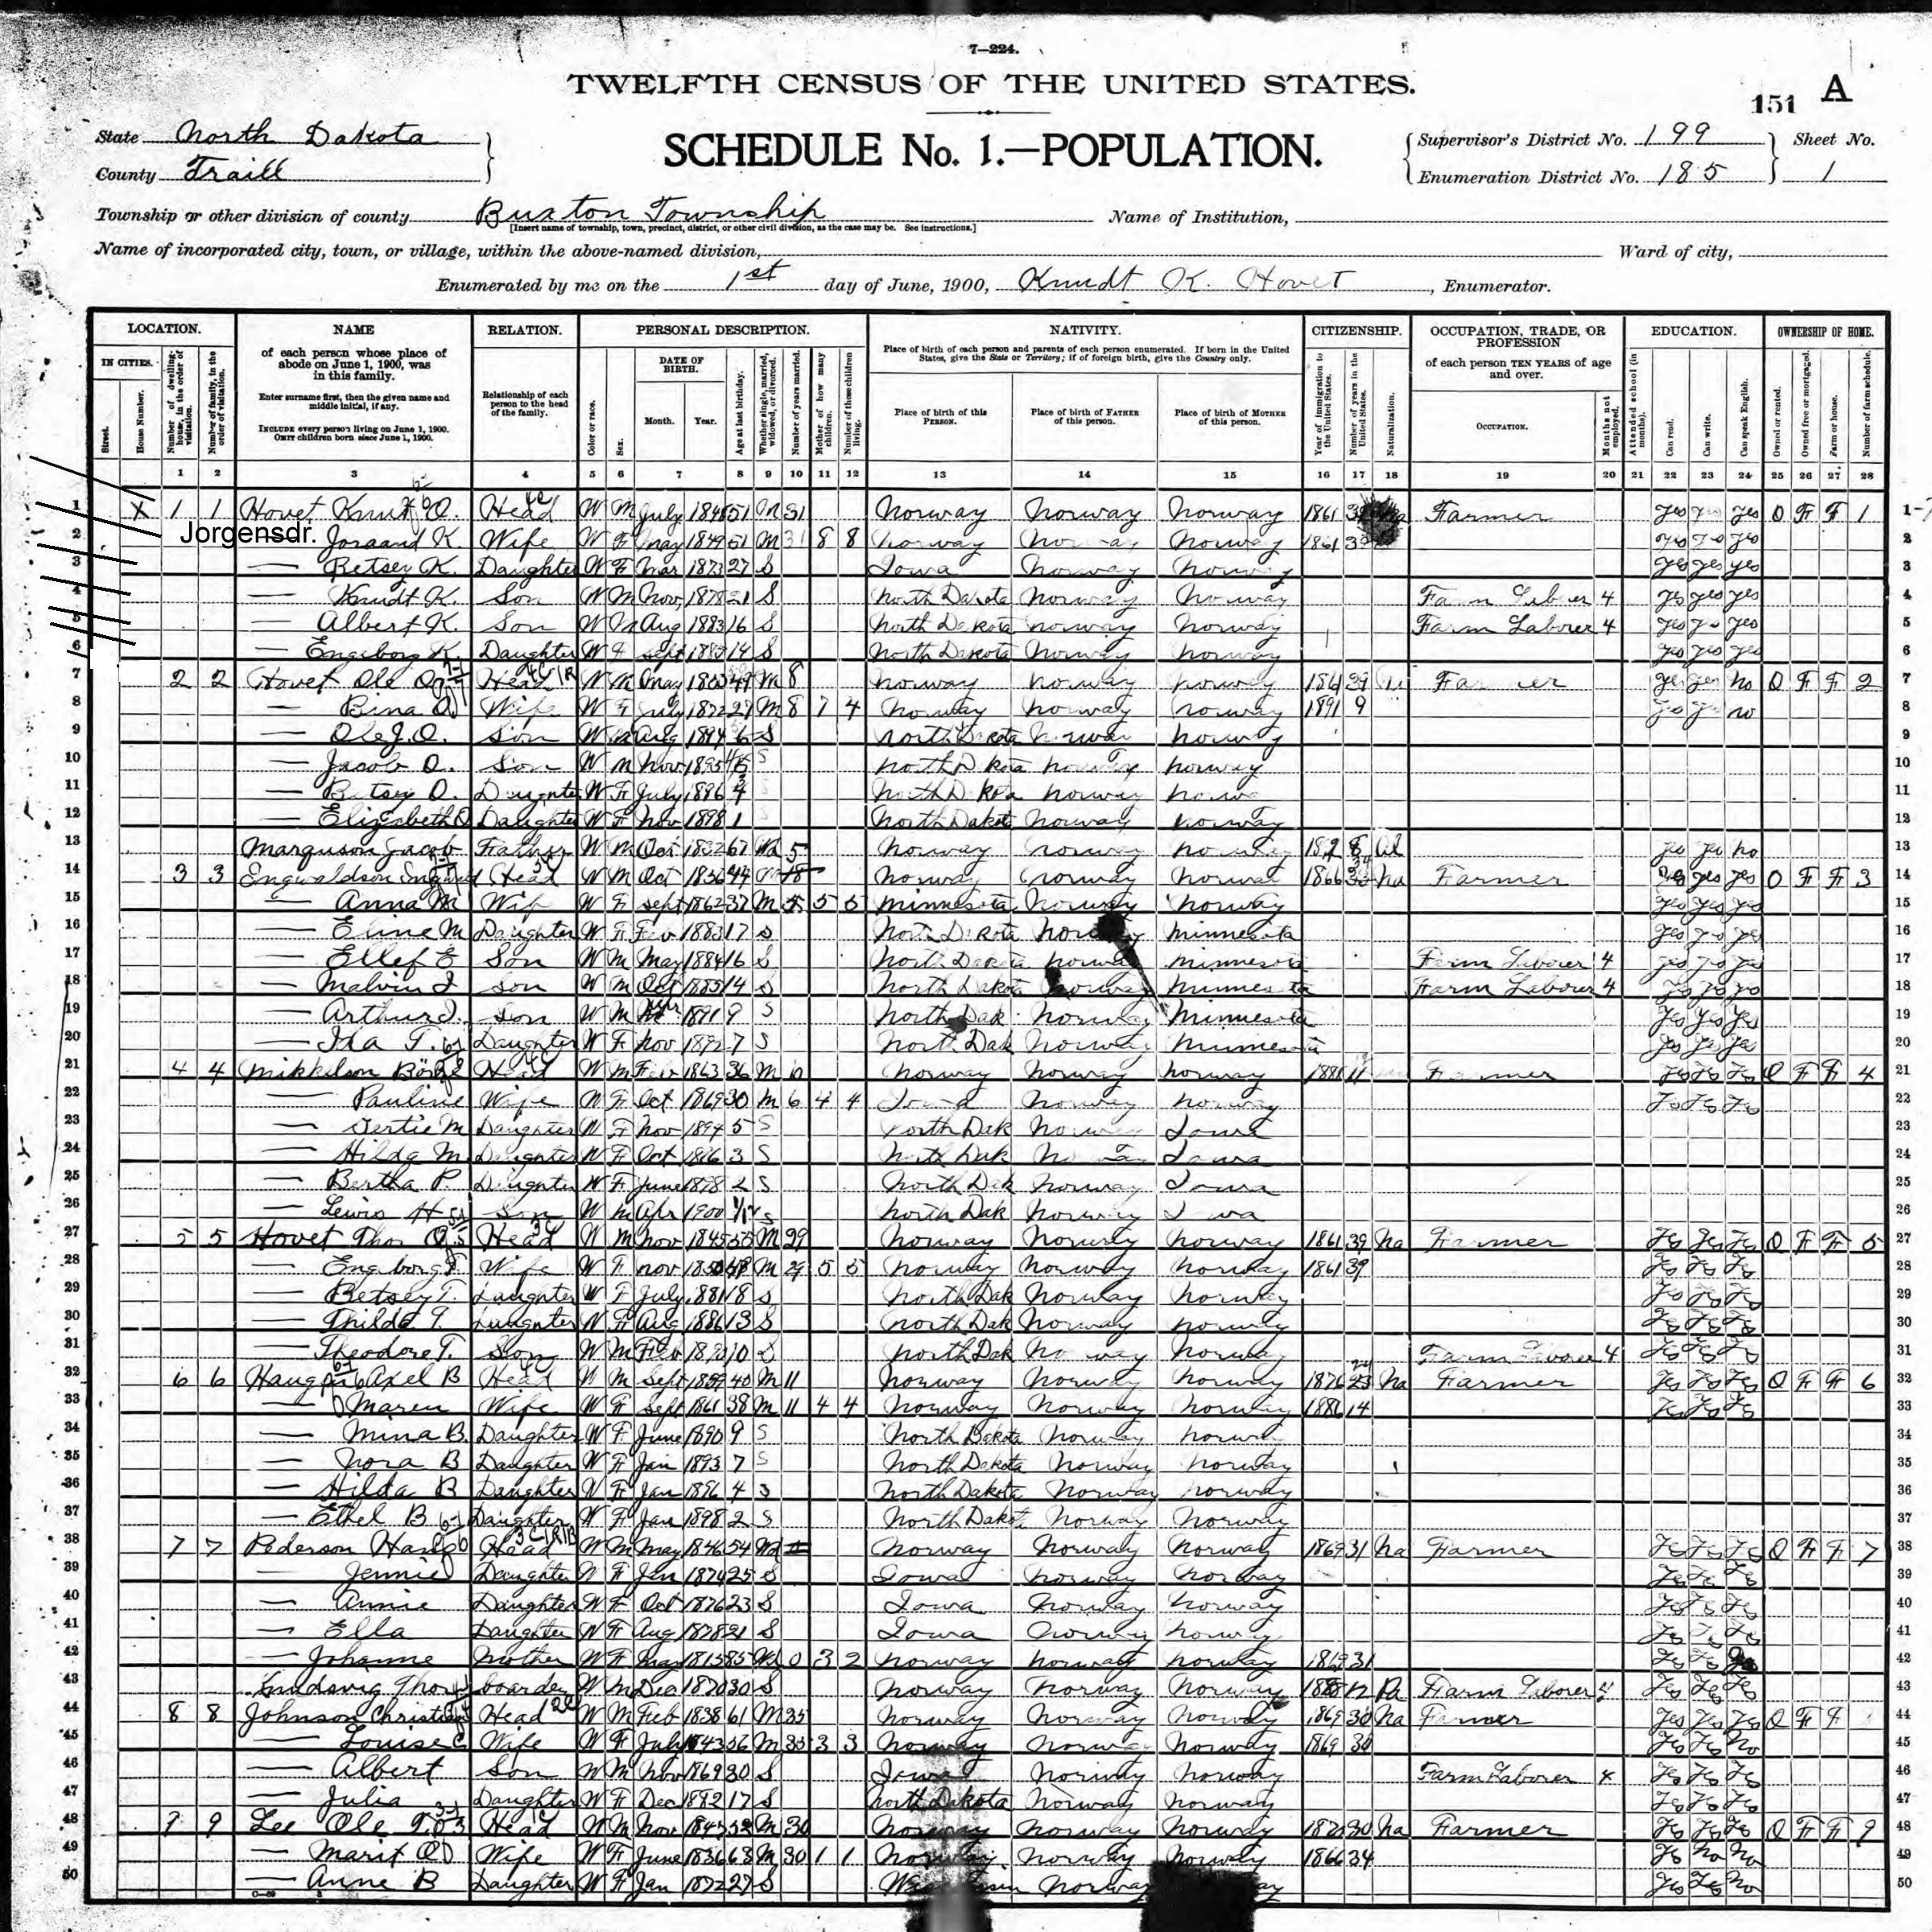 7—224.
TWELFTH CENSUS OF THE UNITED STATES.
151 A
State North Dakota
County Traill
SCHEDULE No. 1.—POPULATION.
Supervisor's District No. 199
Enumeration District No. 185
Sheet No.
1
Township or other division of county Buxton Township
[Insert name of township, town, precinct, district, or other civil division, as the case may be. See instructions.]
Name of Institution,
Name of incorporated city, town, or village, within the above-named division,
Ward of city,
Enumerated by me on the 1st day of June, 1900, Knudt K. Hovet, Enumerator.
LOCATION. NAME RELATION. PERSONAL DESCRIPTION. NATIVITY. CITIZENSHIP. OCCUPATION, TRADE, OR PROFESSION EDUCATION. OWNERSHIP OF HOME.
IN CITIES.
Street.
House Number.
Number of dwelling-house, in the order of visitation.
Number of family, in the order of visitation.
of each person whose place of abode on June 1, 1900, was in this family.
Enter surname first, then the given name and middle initial, if any.
INCLUDE every person living on June 1, 1900.
OMIT children born since June 1, 1900.
Relationship of each person to the head of the family.
Color or race.
Sex.
DATE OF BIRTH.
Month. Year.
Age at last birthday.
Whether single, married, widowed, or divorced.
Number of years married.
Mother of how many children.
Number of these children living.
Place of birth of each person and parents of each person enumerated. If born in the United States, give the State or Territory; if of foreign birth, give the Country only.
Place of birth of this PERSON.
Place of birth of FATHER of this person.
Place of birth of MOTHER of this person.
Year of immigration to the United States.
Number of years in the United States.
Naturalization.
of each person TEN YEARS of age and over.
OCCUPATION.
Months not employed.
Attended school (in months).
Can read.
Can write.
Can speak English.
Owned or rented.
Owned free or mortgaged.
Farm or house.
Number of farm schedule.
1 2 3 4 5 6 7 8 9 10 11 12 13 14 15 16 17 18 19 20 21 22 23 24 25 26 27 28
1 X 1 1 Hovet Knut O. Head W M July 51 M 31 Norway Norway Norway 1861 Farmer yes yes yes O F F 1
Jorgensdr.
2 K. Wife W F May 1849 51 M 31 8 8 Norway Norway Norway 1861 yes yes yes
3 — Betsey K. Daughter W F Mar 1873 27 S Iowa Norway Norway yes yes yes
4 — Knudt K. Son W M Nov 1878 21 S North Dakota Norway Norway Farm Laborer 4 yes yes yes
5 — Albert K. Son W M Aug 1883 16 S North Dakota Norway Norway Farm Laborer 4 yes yes yes
6 — Engeborg K. Daughter W F Sept 14 S North Dakota Norway Norway yes yes yes
7 2 2 Hovet Ole O. Head W M May 49 M 8 Norway Norway Norway 1861 39 Farmer yes yes no O F F 2
8 — Bina O. Wife W F July 1872 27 M 8 7 4 Norway Norway Norway 1891 9 yes yes no
9 — Ole J. O. Son W M Aug 1894 S North Dakota Norway Norway
10 — Jacob O. Son W M Nov 1895 S North Dakota Norway Norway
11 — Betsey O. Daughter W F July 1896 S North Dakota Norway Norway
12 — Elizabeth O Daughter W F Nov 1898 1 S North Dakota Norway Norway
13 Marguson Jacob Father W M Oct 1832 67 Wd 5 Norway Norway Norway 8 Al yes yes no
14 3 3 Engwaldson Head W M Oct 44 M 18 Norway Norway Norway 1866 Na Farmer yes yes yes O F F 3
15 — Anna M Wife W F Sept 1862 37 M 5 5 Minnesota Norway Norway yes yes yes
16 — Eline M Daughter W F Feb 1883 17 S North Dakota Norway Minnesota yes yes yes
17 — Ellef E Son W M May 1884 16 S North Dakota Norway Minnesota Farm Laborer 4 yes yes yes
18 — Malvin I Son W M Oct 1885 14 S North Dakota Norway Minnesota Farm Laborer 4 yes yes yes
19 — Arthur I. Son W M 1891 9 S North Dak Norway Minnesota yes yes yes
20 — Ida T. Daughter W F Nov 1892 7 S North Dak Norway Minnesota yes yes yes
21 4 4 Mikkelson Head W M Feb 1863 36 M 6 Norway Norway Norway 11 Farmer yes yes yes O F F 4
22 — Pauline Wife W F Oct 1869 30 M 6 4 4 Iowa Norway Norway yes yes yes
23 — Gertie M Daughter W F Nov 1894 5 S North Dak Norway Iowa
24 — Hilda M Daughter W F Oct 1896 3 S North Dak Norway Iowa
25 — Bertha P. Daughter W F June 1898 2 S North Dak Norway Iowa
26 — Lewis H Son W M Apr 1900 S North Dak Norway Iowa
27 5 5 Hovet Thor O. Head W M Nov 1845 55 M 29 Norway Norway Norway 1861 39 Na Farmer yes yes yes O F F 5
28 — Engeborg T. Wife W F Nov M 29 5 5 Norway Norway Norway 1861 39 yes yes yes
29 — Betsey T. Daughter W F July 1881 18 S North Dak Norway Norway yes yes yes
30 — Thilda T. Daughter W F Aug 1886 13 S North Dak Norway Norway yes yes yes
31 — Theodore T. Son W M Feb 1890 10 S North Dak Norway Norway Farm Laborer 4 yes yes yes
32 6 6 Haugen Axel B Head W M Sept 1859 40 M 11 Norway Norway Norway 1876 Na Farmer yes yes yes O F F 6
33 — Maren Wife W F Sept 1861 38 M 11 4 4 Norway Norway Norway 1886 14 yes yes yes
34 — Mina B. Daughter W F June 1890 9 S North Dakota Norway Norway
35 — Nora B Daughter W F Jan 1893 7 S North Dakota Norway Norway
36 — Hilda B Daughter W F Jan 1896 4 S North Dakota Norway Norway
37 — Ethel B Daughter W F Jan 1898 2 S North Dakota Norway Norway
38 7 7 Pederson Hans Head W M May 1846 54 Wd Norway Norway Norway 1869 31 Na Farmer yes yes yes O F F 7
39 — Jennie Daughter W F Jan 1874 25 S Iowa Norway Norway yes yes yes
40 — Annie Daughter W F Oct 1876 23 S Iowa Norway Norway yes yes yes
41 — Ella Daughter W F Aug 1878 21 S Iowa Norway Norway yes yes yes
42 — Johanne Mother W F May 1815 85 Wd 0 3 2 Norway Norway Norway 1869 31 yes yes
43 Thor boarder W M Dec 1870 30 S Norway Norway Norway 12 Pa Farm Laborer yes yes yes
44 8 8 Johnson Christian Head W M Feb 1838 61 M 35 Norway Norway Norway 1869 30 Na Farmer yes yes yes O F F
45 — Louise C Wife W F July 1843 56 M 35 3 3 Norway Norway Norway 1869 30 yes yes no
46 — Albert Son W M Nov 1869 30 S Iowa Norway Norway Farm Laborer 4 yes yes yes
47 — Julia Daughter W F Dec 1882 17 S North Dakota Norway Norway yes yes yes
48 9 9 Lee Ole T. Head W M Nov M 30 Norway Norway Norway 30 Na Farmer yes yes yes O F F 9
49 — Marit O Wife W F June 1836 63 M 30 1 1 Norway Norway Norway 1866 34 yes no no
50 — Anne B Daughter W F Jan 1872 27 S Wisconsin Norway yes yes no